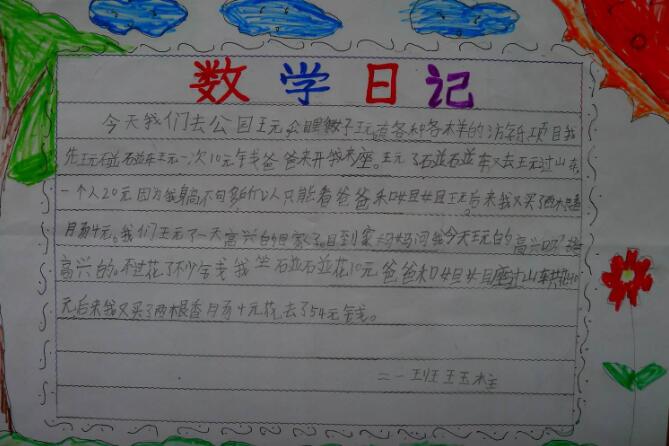 数学日记
今天我们去公园玩,公园里有各种各样的游玩项目我
先玩碰碰车玩一次10元钱爸爸来开我来座。玩了碰碰车又去玩过山车
一个人20元因为我身高不句所以只能看爸爸和姐姐玩后来我又买了两根香
肠4元。我们玩了一天高兴的回家了。回到家妈妈问我今天玩的高兴吗?挺
高兴的。不过花了不少钱我坐碰碰花10元爸爸和姐姐座过山车共花40
元后来我又买了两根香肠4元花去了54元钱。
二一班王玉柱